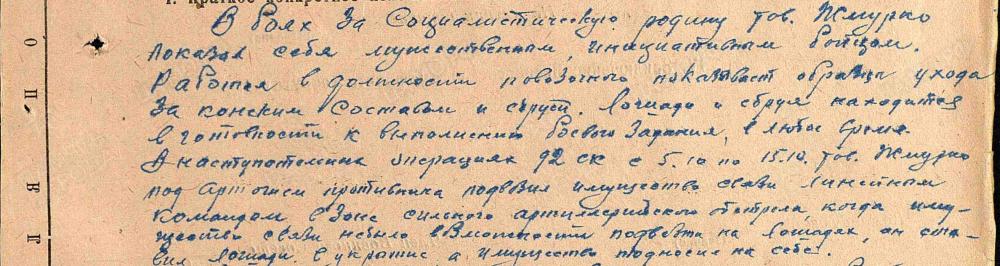 1. Краткое конкретное
В боях за Социалистическую родину тов. Жмурко
показал себя мужественным, инициативным бойцом.
Работая в должности повозочного показывает образцы ухода
за конским составом и сбруей. Лошади и сбруя находится
в готовности к выполнению боевого задания, в любое время.
В наступательных операциях 92 ск с 5.10 по 15.10. тов. Жмурко
под артогнем противника подвозил имущество связи линейным
командам, в зоне сильного артиллерийского обстрела, когда иму-
щество связи небыло возможности подвезти на лошадях, он ста-
вил лошади в укрытие а имущество подносил на себе.
О
П
В
Г